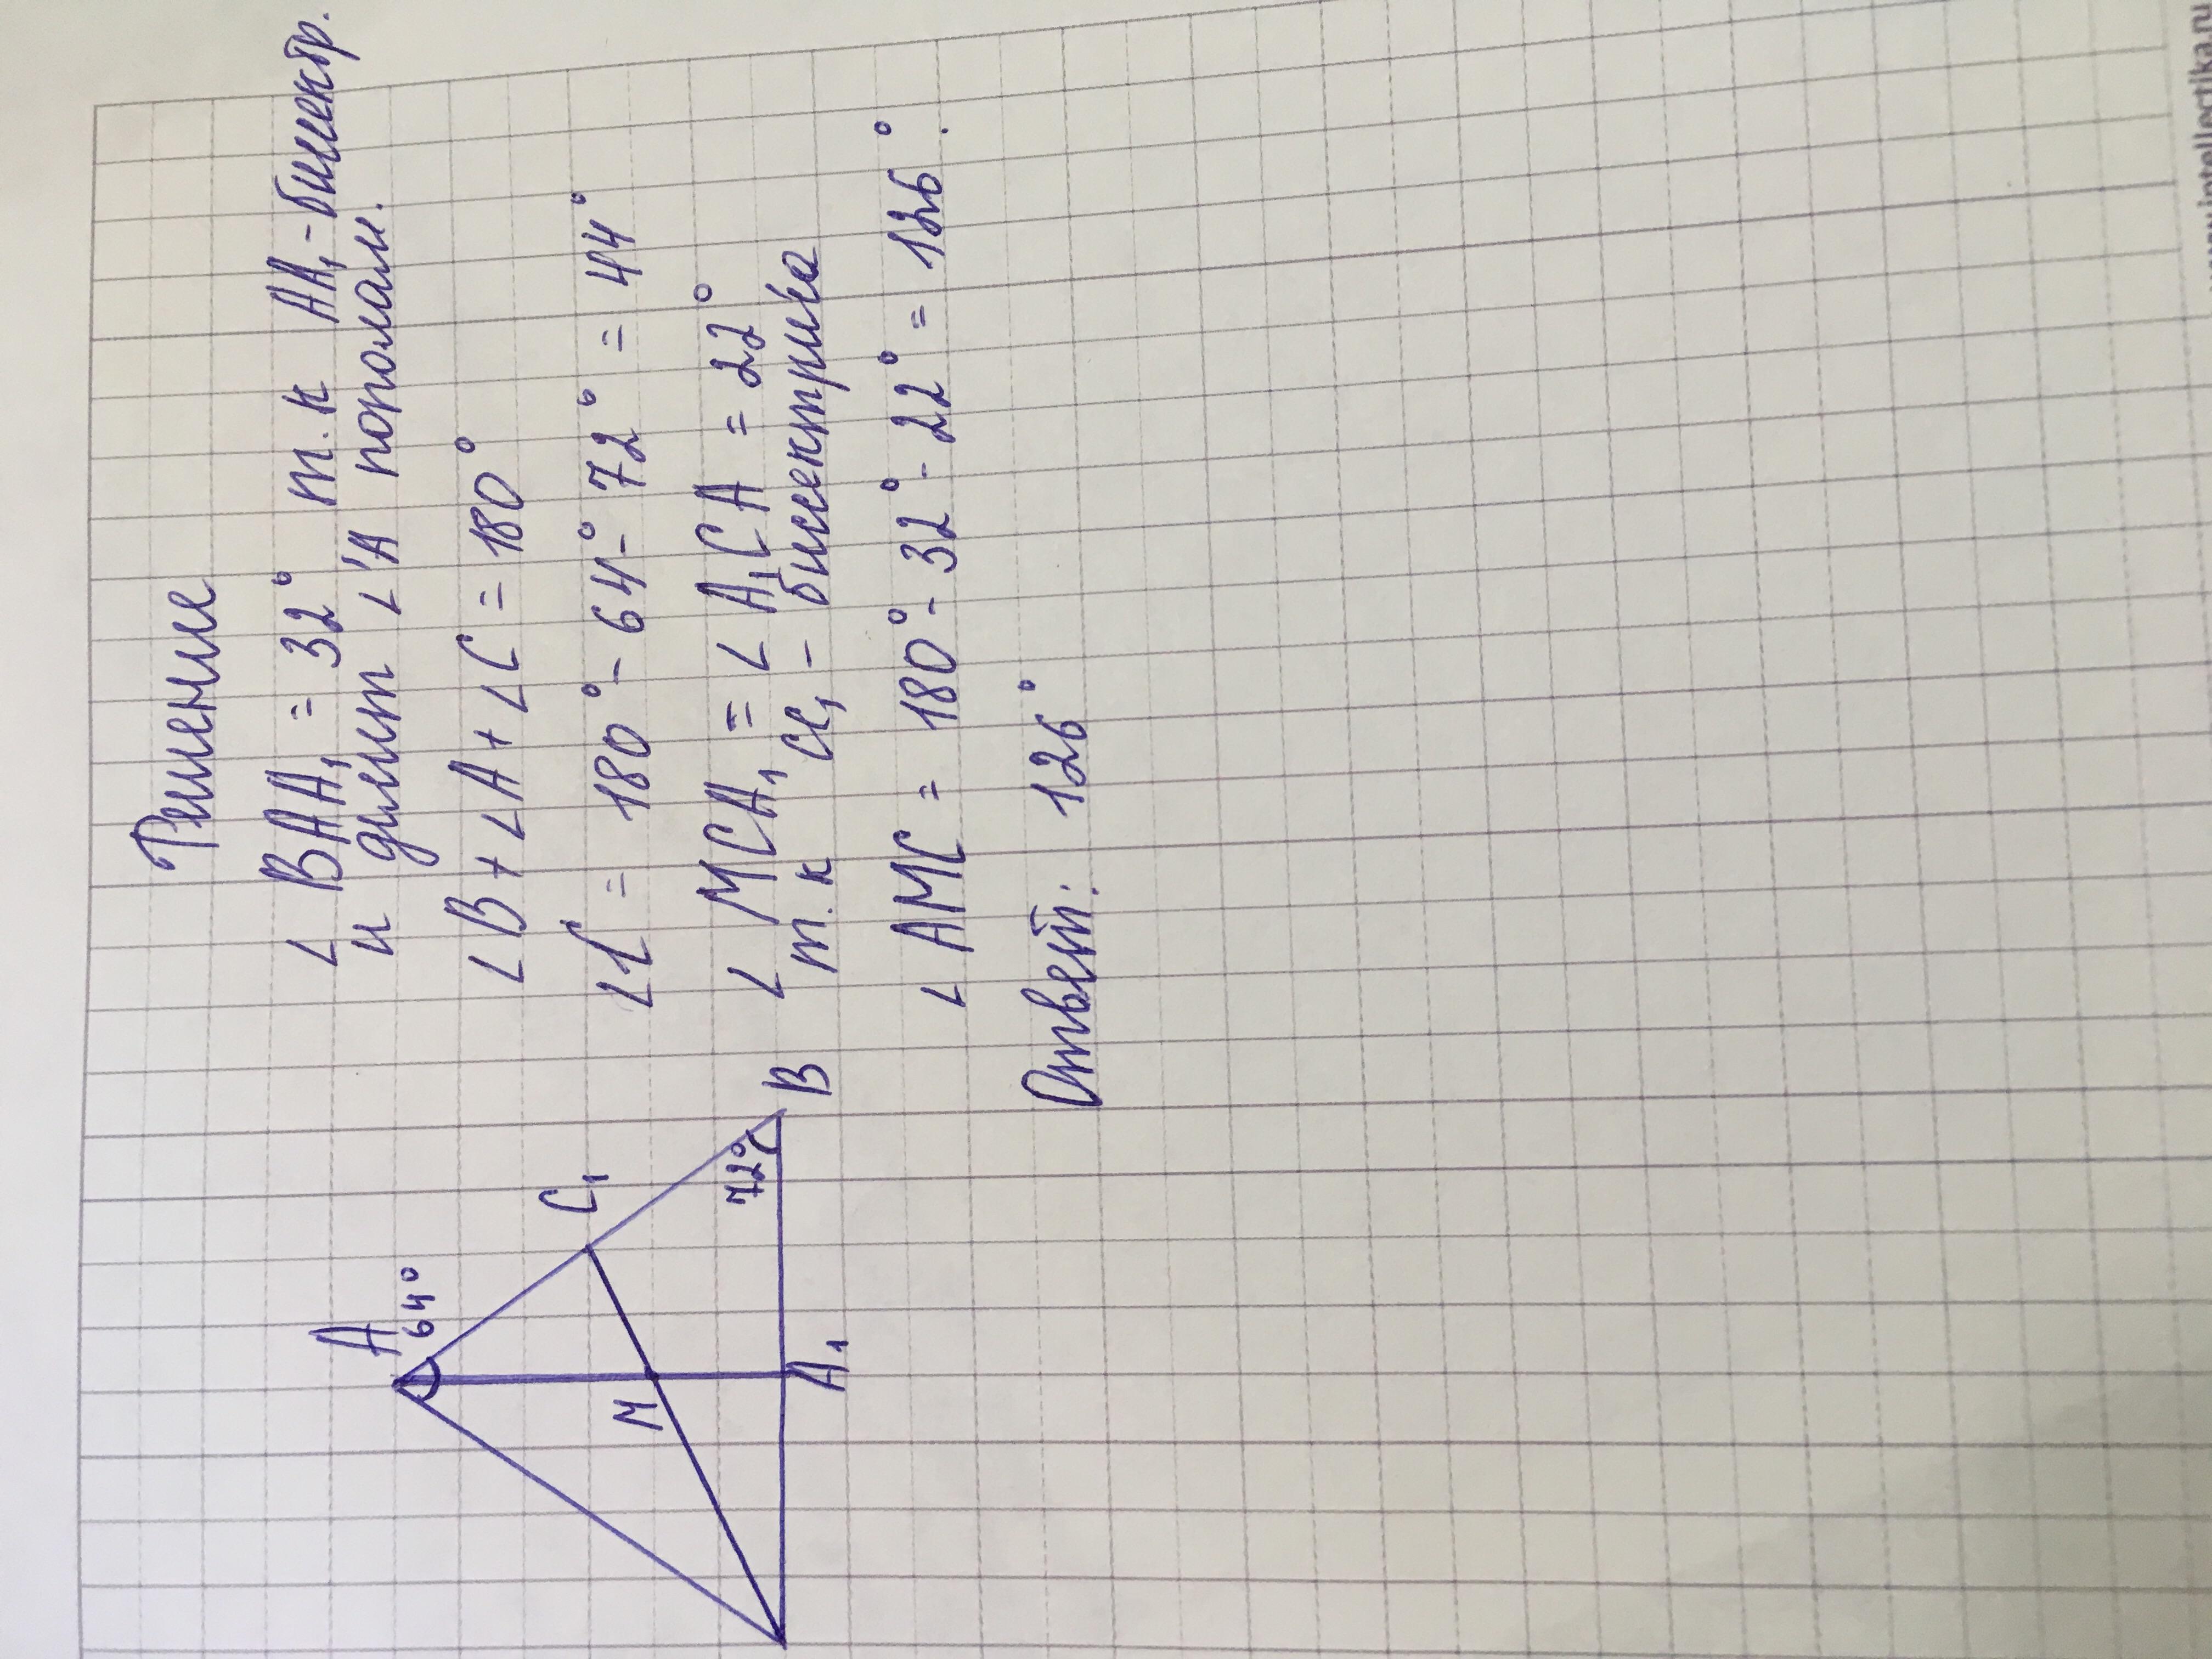 Решение
∠ BAA₁ = 32° т.к AA₁ - биссектр.
и делит ∠A пополам.
∠B + ∠A + ∠C = 180°
∠C = 180° - 64° - 72° = 44°
∠ MCA₁ = ∠ A₁CA = 22°
т.к CC₁ - биссектриса
∠ AMC = 180° - 32° - 22° = 126°.
Ответ: 126°
A
64°
C₁
M
72°
B
A₁